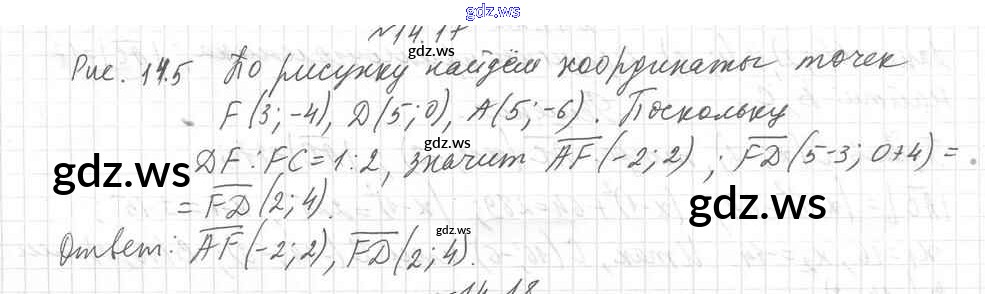 gdz.ws
№14.17
gdz.ws
Рис. 14.5 По рисунку найдём координаты точек
F(3; -4), D(5; 0), A(5; -6). Поскольку
gdz.ws
DF : FC = 1 : 2, значит AF(-2; 2), FD(5-3; 0+4) =
gdz.ws
gdz.ws
= FD(2; 4).
gdz.ws
Ответ: AF(-2; 2), FD(2; 4).
14.18